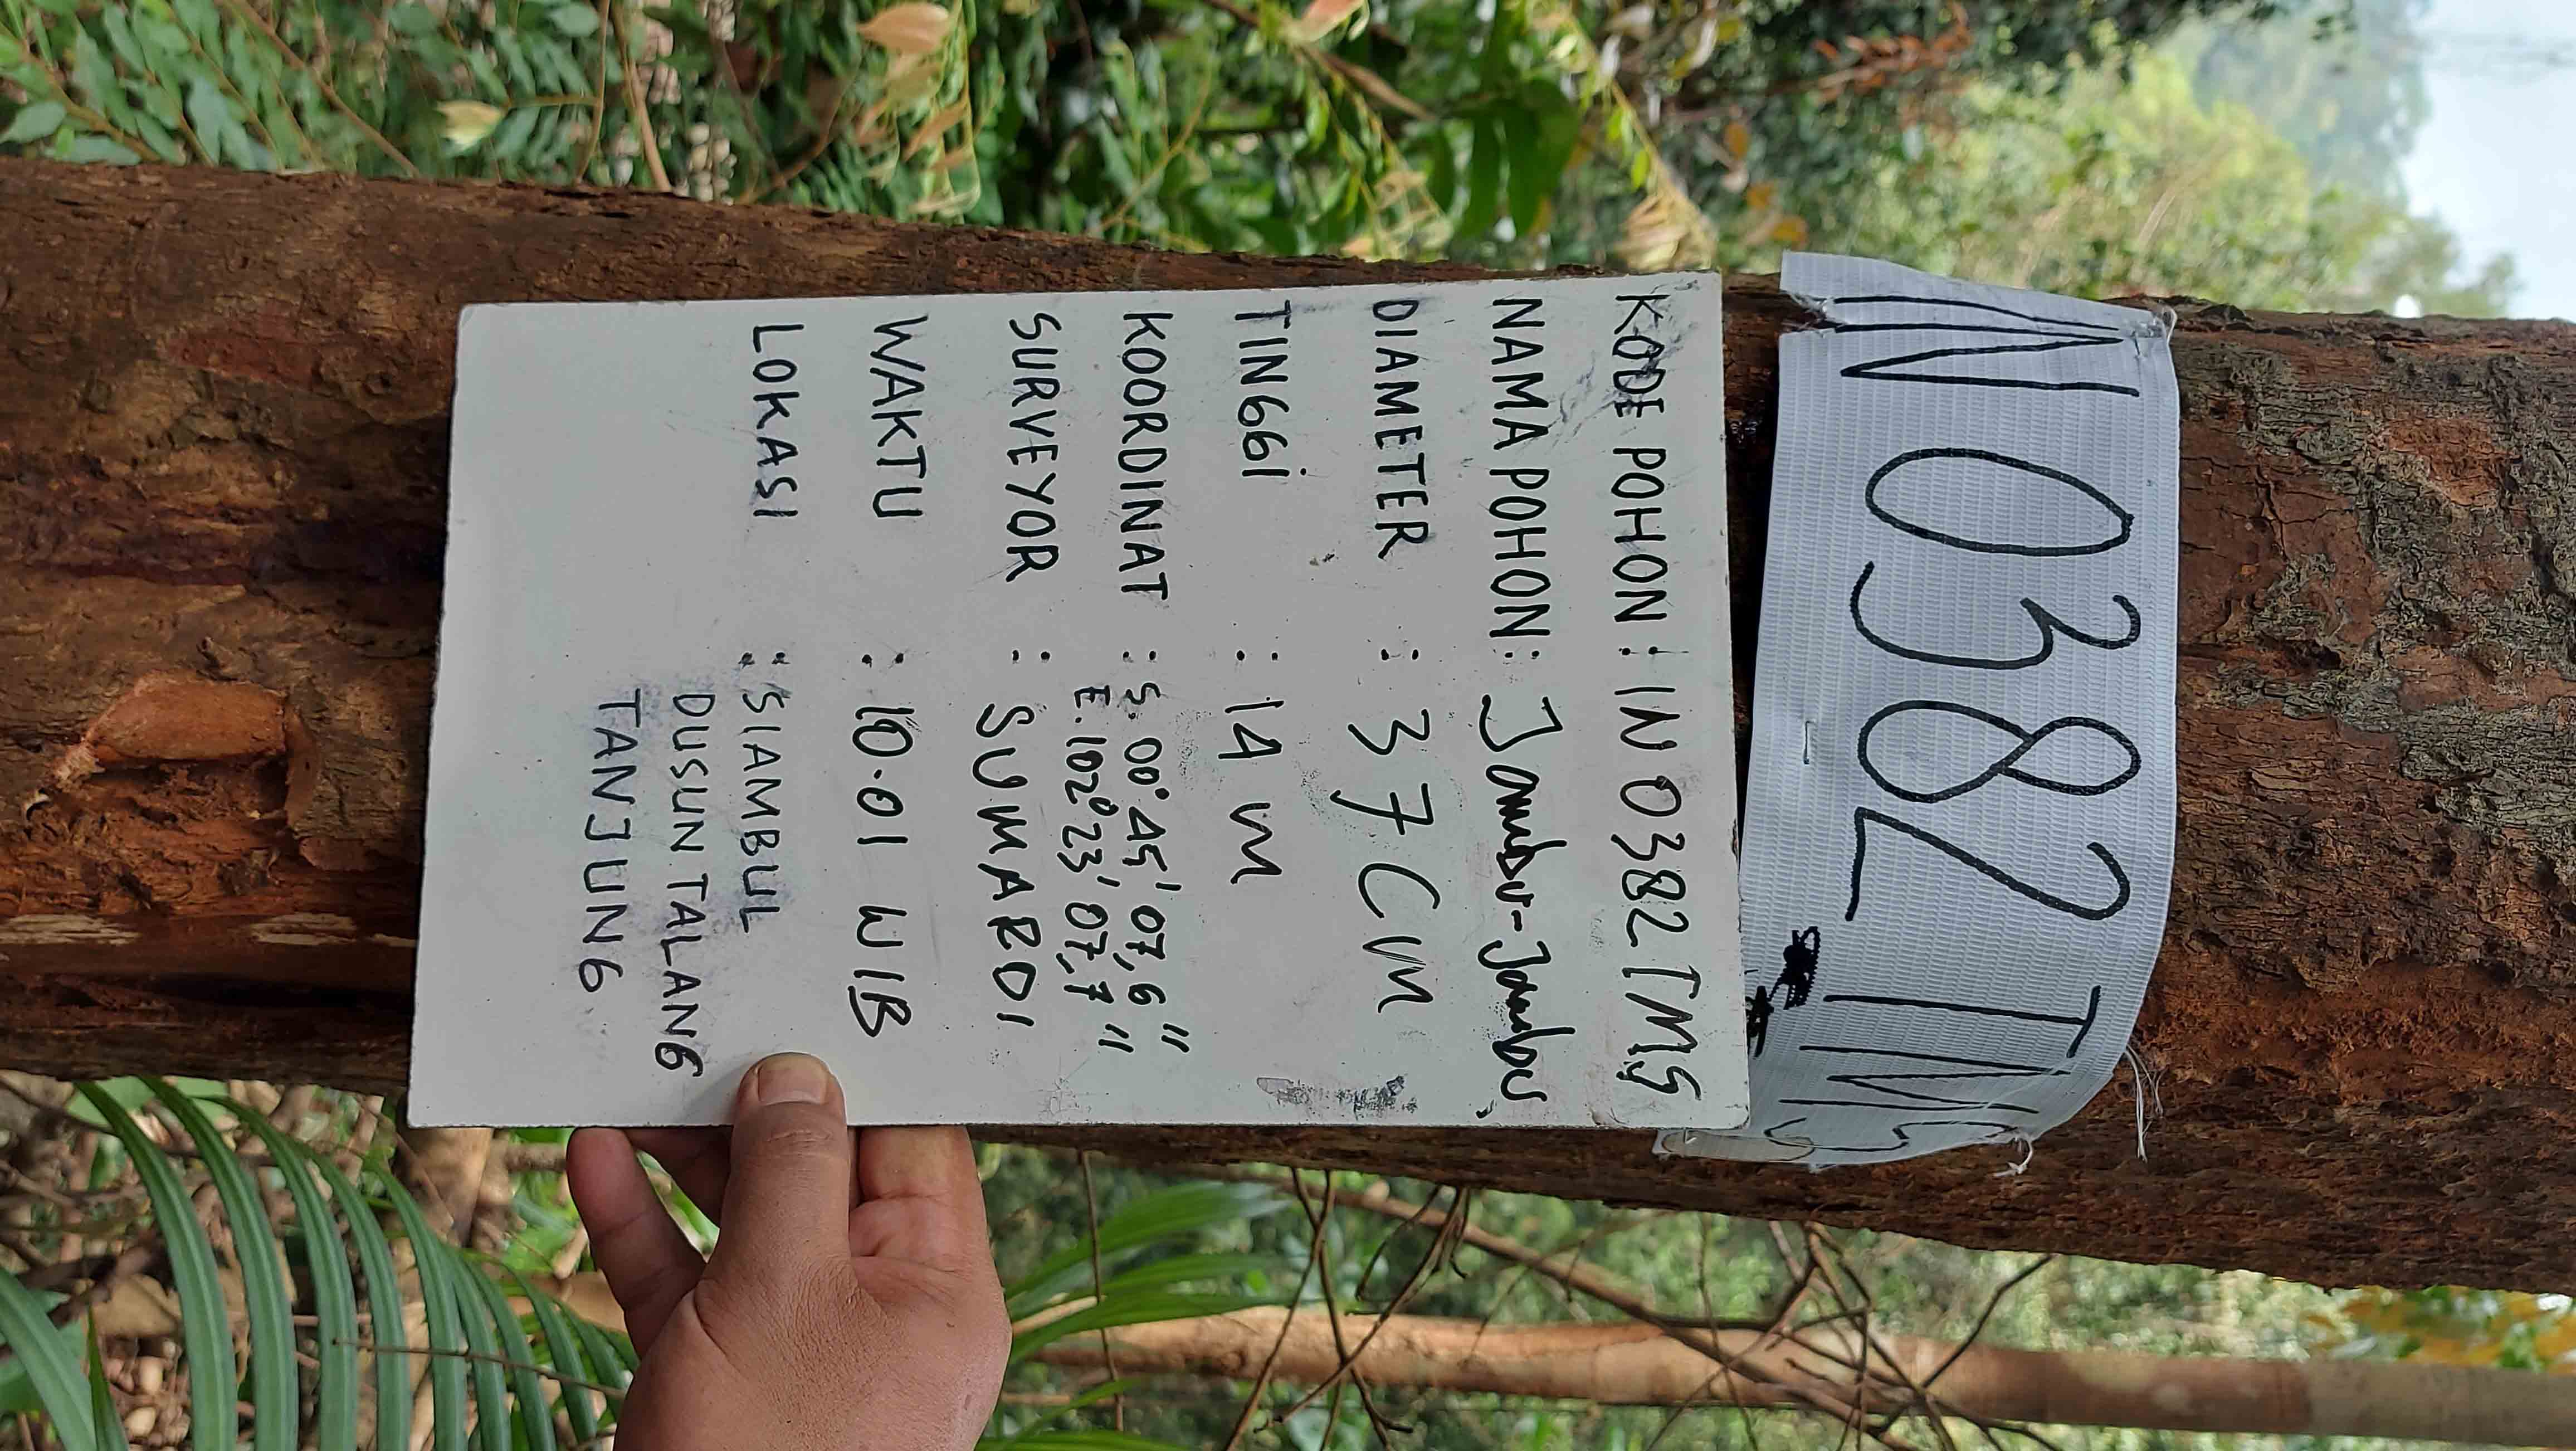 IN 0382 TMS
KODE POHON : IN 0382 TMS
NAMA POHON : Jambu-Jambu
DIAMETER : 37 CM
TINGGi : 14 m
KOORDINAT : S. 00° 45' 07,6"
E. 102° 23' 07,7"
SURVEYOR : SUMARDI
WAKTU : 10.01 WIB
LOKASI : SIAMBUL
DUSUN TALANG
TANJUNG